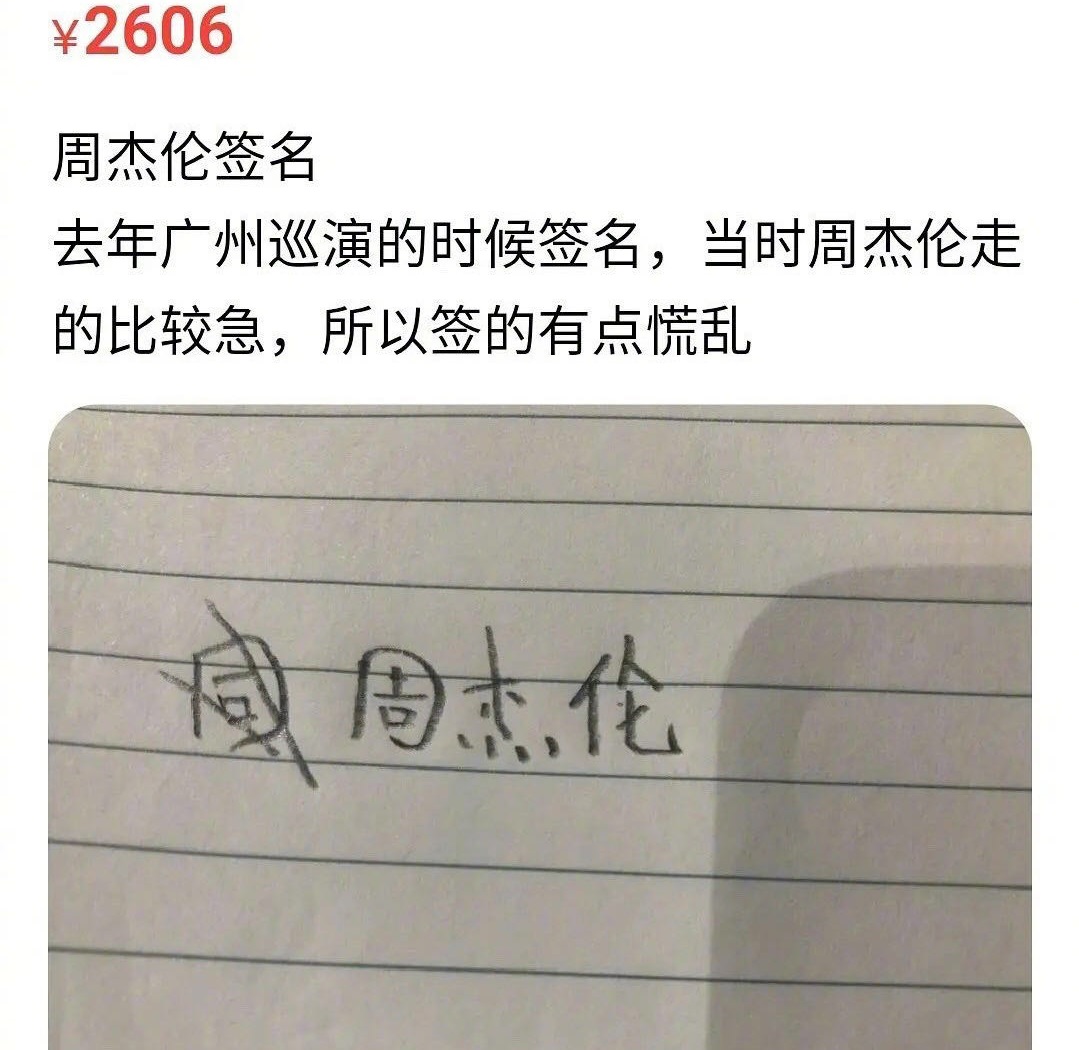 ¥2606
周杰伦签名
去年广州巡演的时候签名，当时周杰伦走
的比较急，所以签的有点慌乱
周杰伦